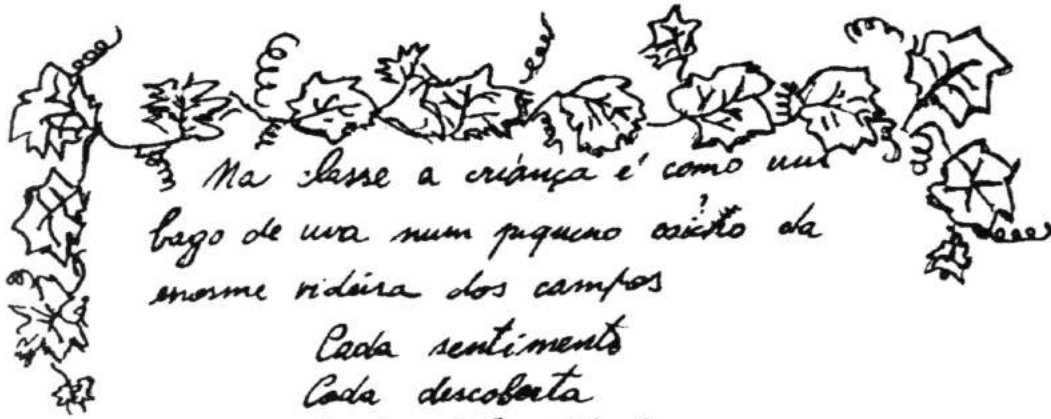 Na classe a criança é como um
bago de uva num pequeno cacho da
enorme videira dos campos
Cada sentimento
Cada descoberta